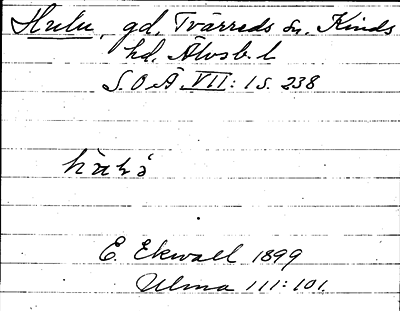 Hulu, gd, Tvärreds sn. Kinds
hd, Älvsb. l
S.O.Ä VII: 1 s. 238
E. Ekwall 1899
Ulma 111:101.